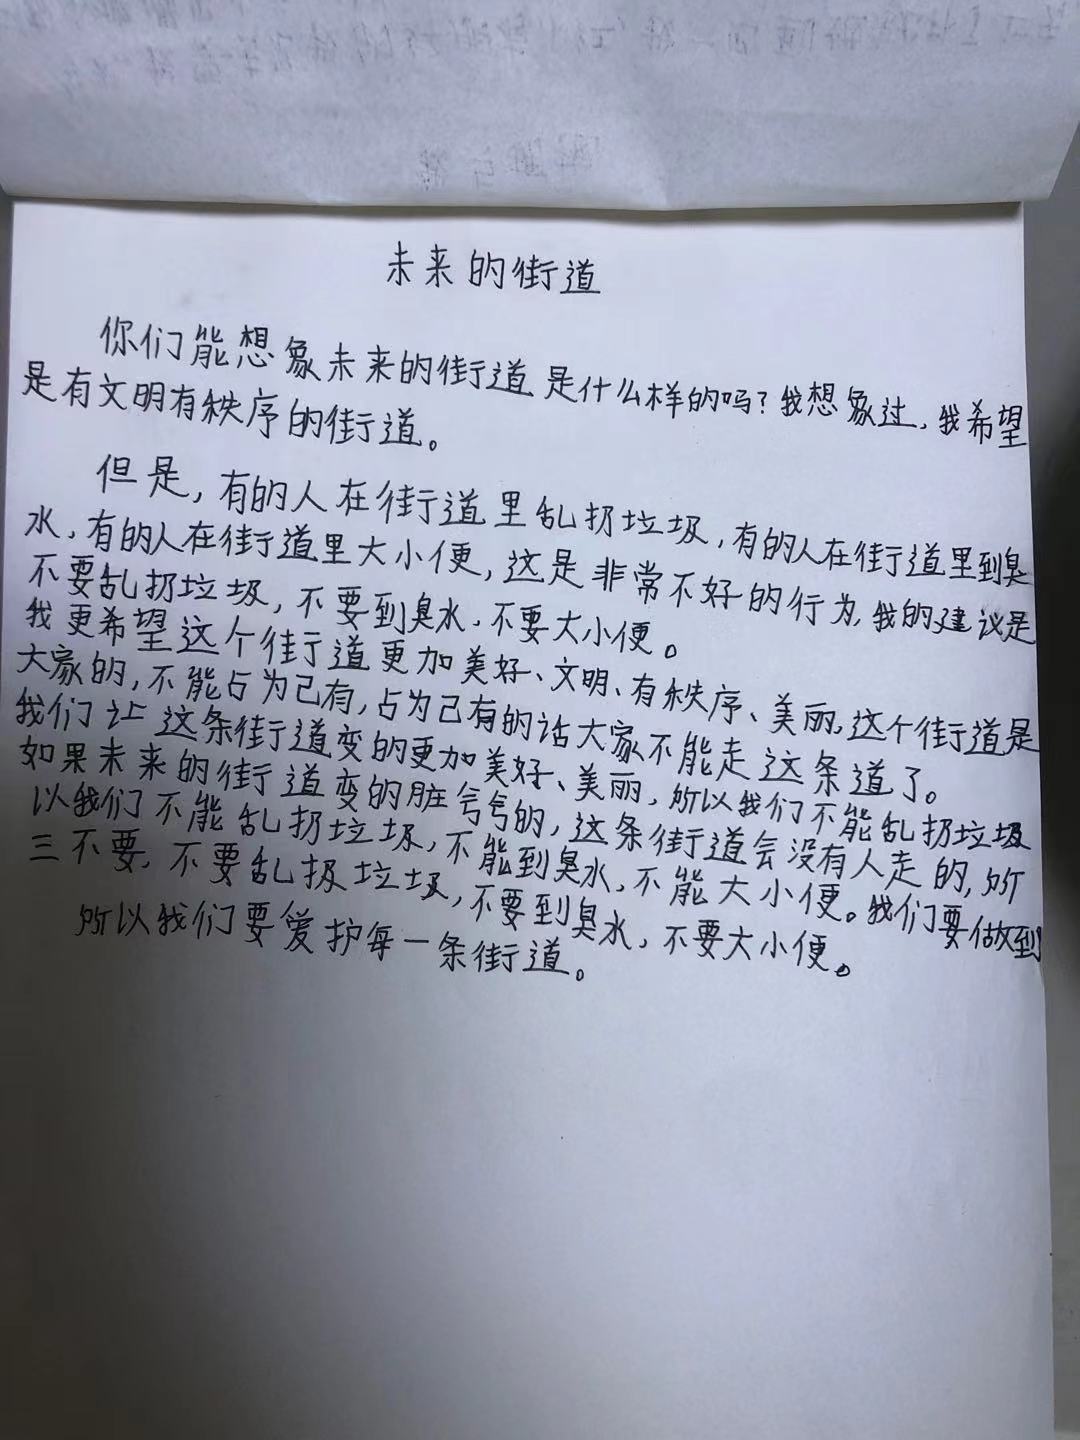 未来的街道
你们能想象未来的街道是什么样的吗？我想象过，我希望
是有文明有秩序的街道。
但是，有的人在街道里乱扔垃圾，有的人在街道里到臭
水，有的人在街道里大小便，这是非常不好的行为，我的建议是
不要乱扔垃圾，不要到臭水，不要大小便。
我更希望这个街道更加美好、文明、有秩序、美丽，这个街道是
大家的，不能占为己有，占为己有的话大家不能走这条道了。
我们让这条街道变的更加美好、美丽，所以我们不能乱扔垃圾
如果未来的街道变的脏兮兮的，这条街道会没有人走的，所
以我们不能乱扔垃圾，不能到臭水，不能大小便。我们要做到
三不要，不要乱扱垃圾，不要到臭水，不要大小便。
所以我们要爱护每一条街道。